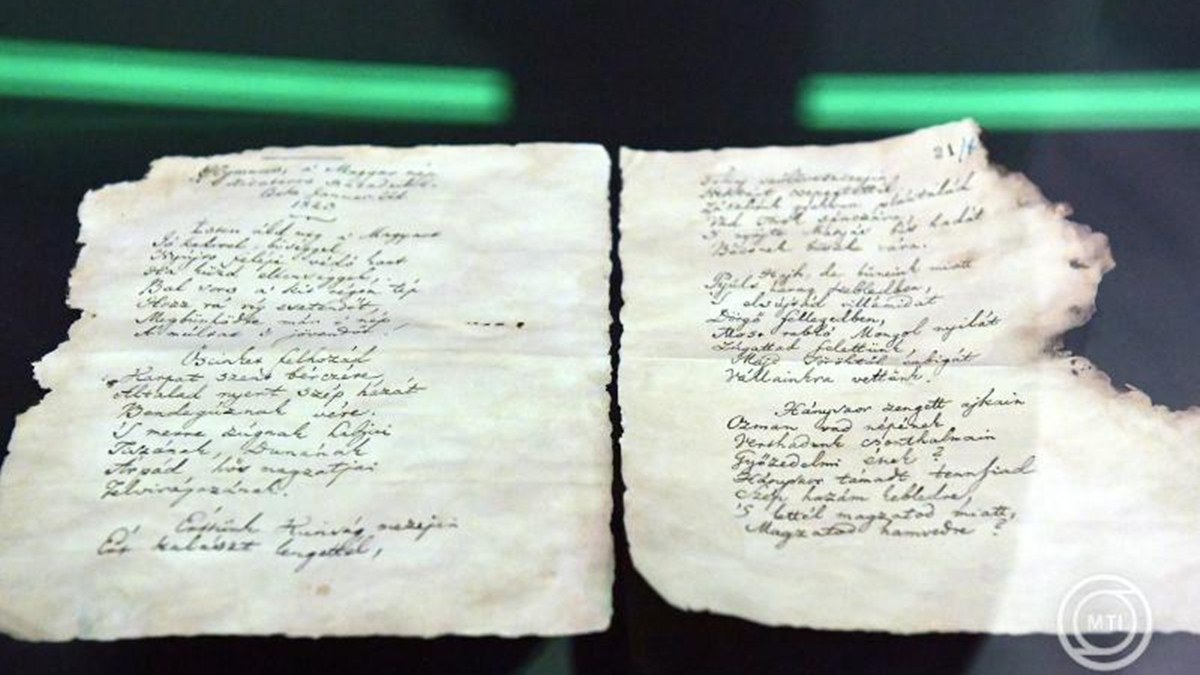 Hymnus, a' Magyar nép
zivataros századaiból.
Cseke Januar
1823
Isten áldd meg a' Magyart
Jó kedvvel, bőséggel
Nyújts feléje védő kart
Ha küzd ellenséggel;
Bal sors a' kit régen tép
Hozz rá víg esztendőt,
Megbűnhődte már e' nép
A' múltat 's jövendőt.
Őseinket felhozád
Kárpát szent bérczére,
Általad nyert szép hazát
Bendegúznak vére.
'S merre zúgnak habjai
Tiszának, Dunának
Árpád hős magzatjai
Felvirágozának.
Értünk Kunság mezején
Ért kalászt lengettél,
21/
szőlővesszein
Nektárt csepegtettél,
Zászlónk plántálád
Vad török sánczára,
'S nyögte Mátyás bús hadát
Bécsnek büszke vára.
Hajh, de bűneink miatt
Gyúlt harag kebledben,
'S elsújtád villámidat
Dörgő fellegedben,
Most rabló Mongol nyilát
Zúgattad felettünk,
Majd töröktől rabigát
Vállainkra vettünk.
Hányszor zengett ajkain
Ozman vad népének
Vert hadunk csonthalmain
Győzedelmi ének?
Hányszor támadt tenn fiad
Szép hazám kebledre,
'S lettél magzatod miatt,
Magzatod hamvedre?
MTI